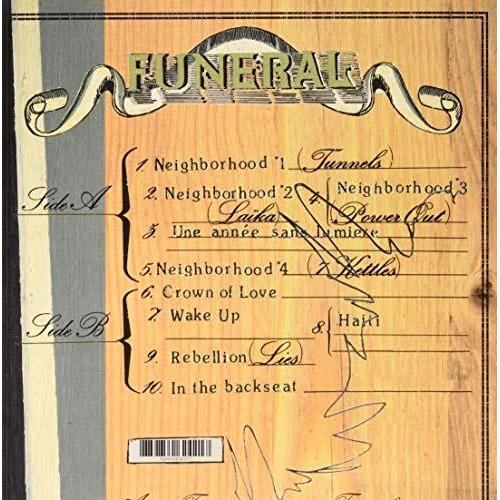 FUNERAL
Side A
1. Neighborhood #1 (Tunnels)
2. Neighborhood #2 (Laika)
3. Une année sans lumiere
4 Neighborhood #3 (Power Out)
5. Neighborhood #4 (7 Kettles)
Side B
6. Crown of Love
7. Wake Up
8 Haiti
9. Rebellion (Lies)
10. In the backseat